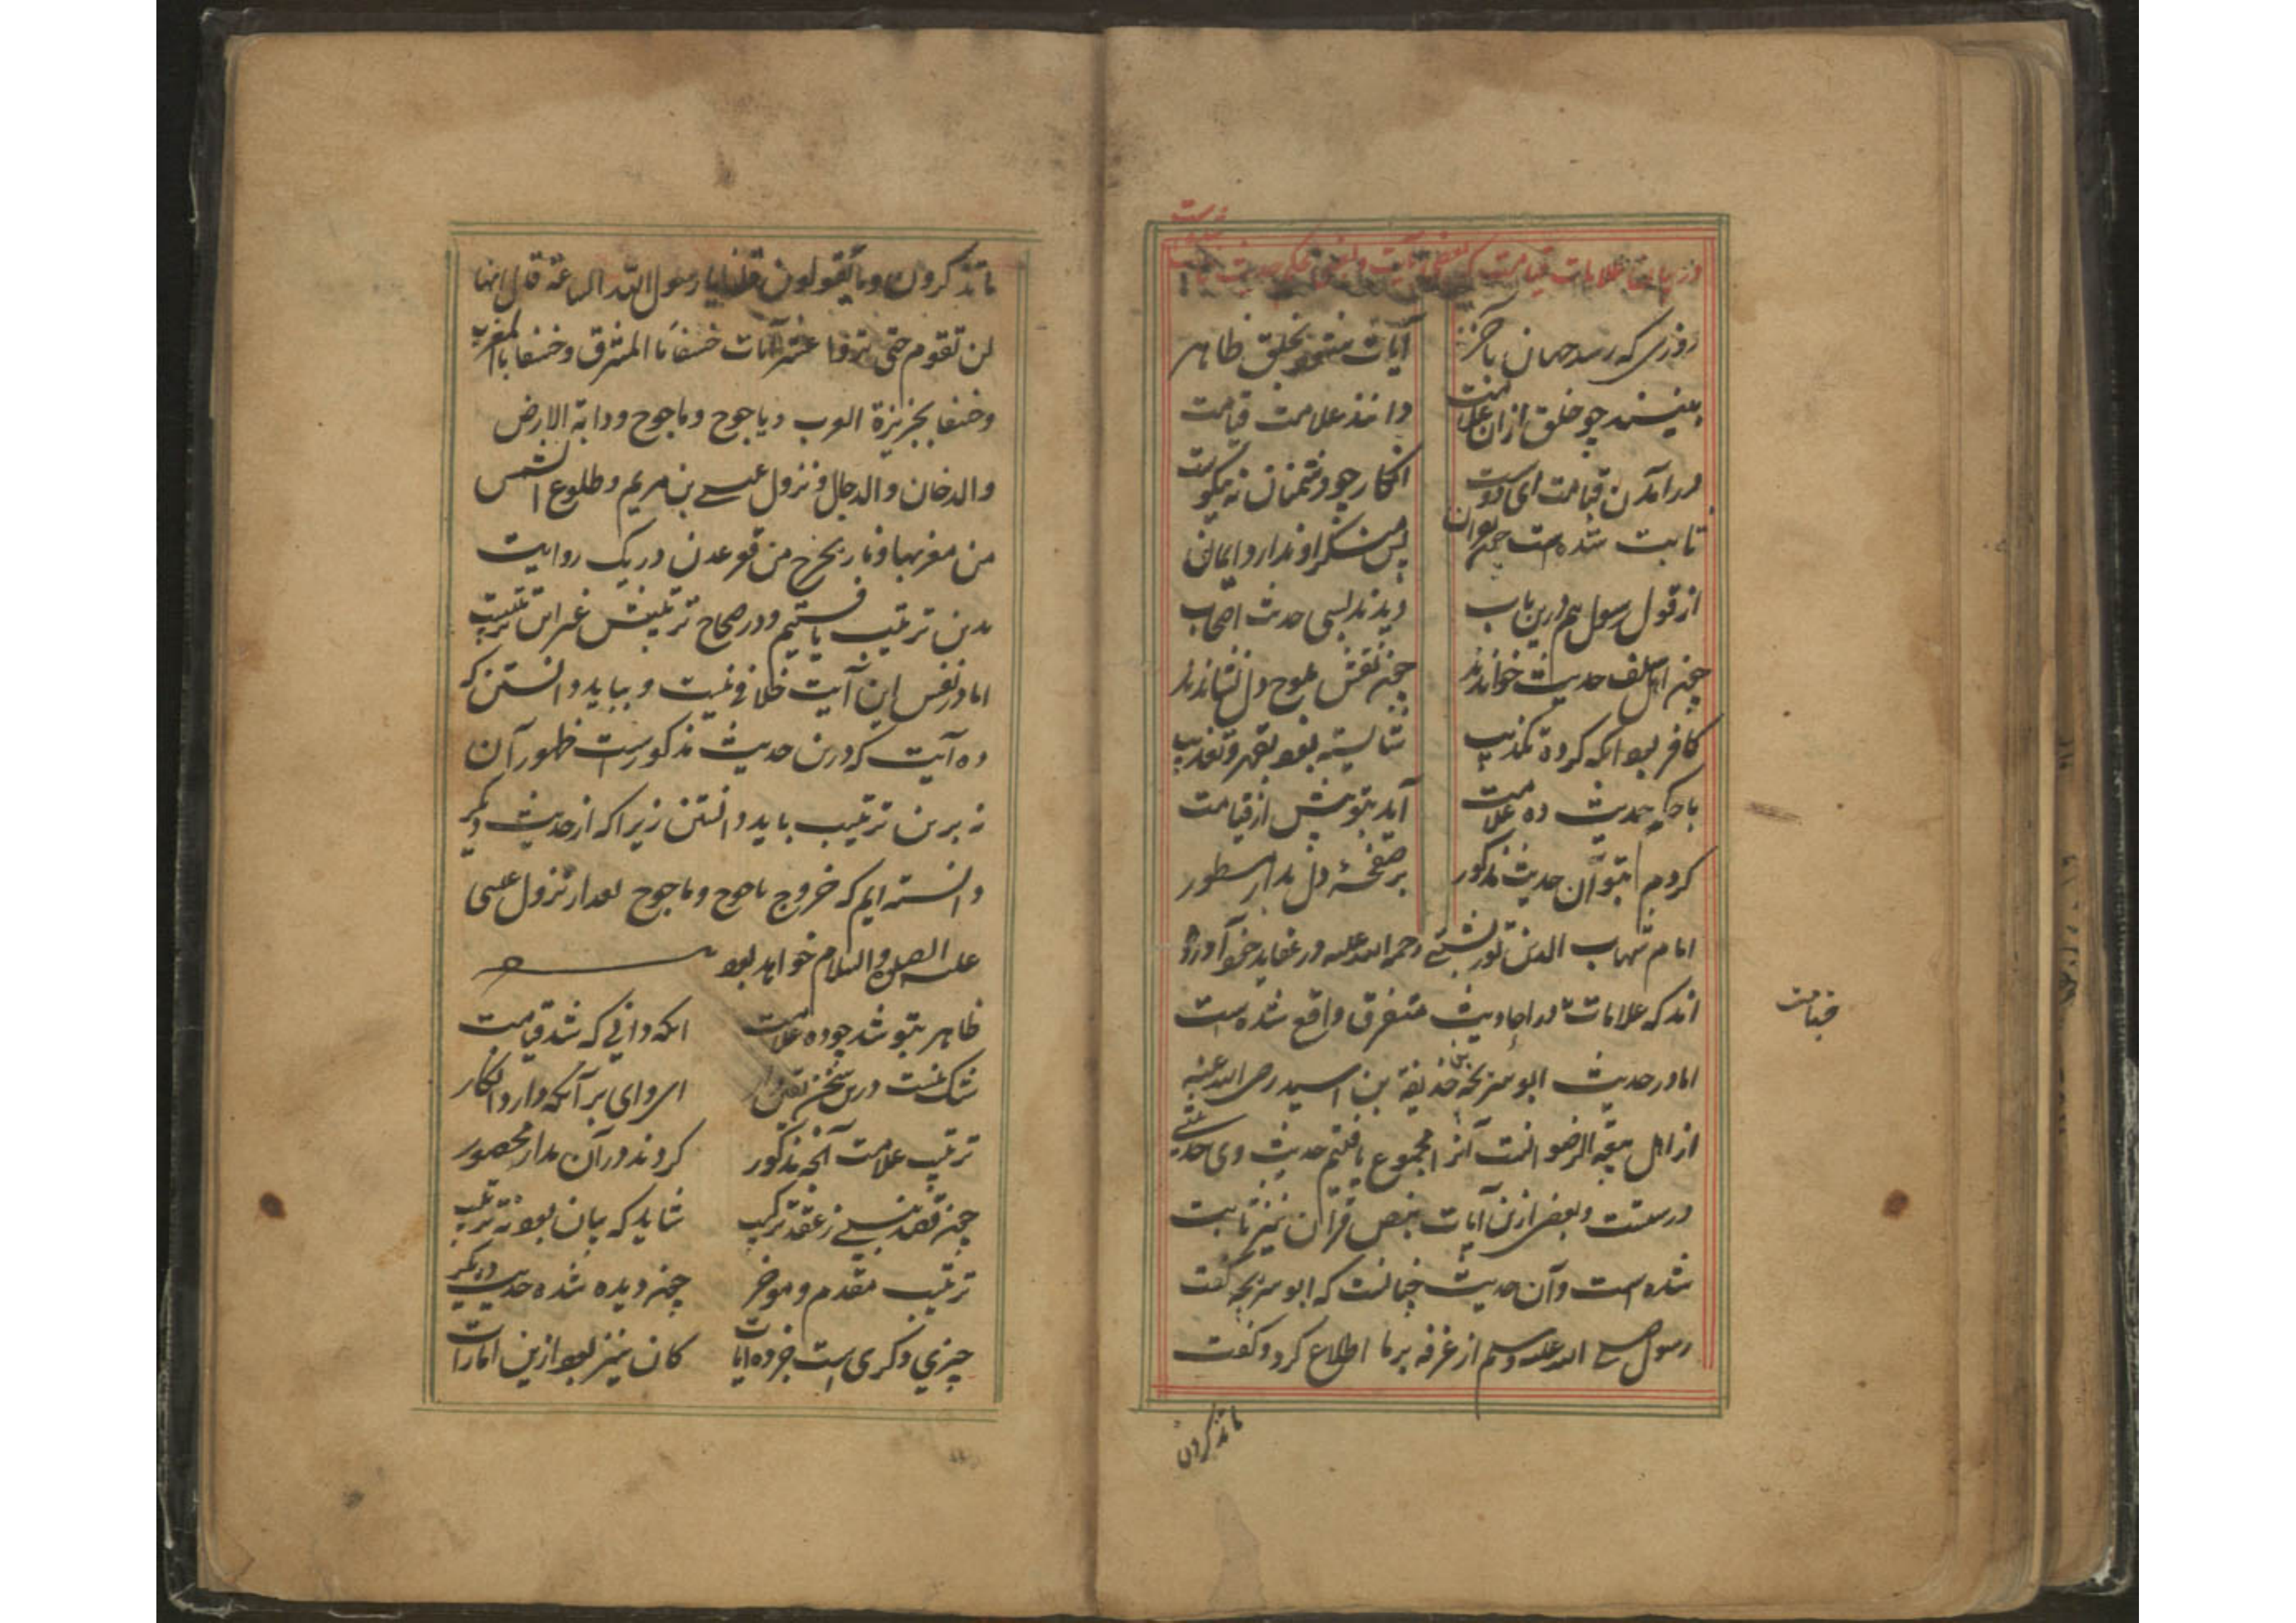 در بیان علامات قیامت که بعضی بآیت و بعضی بحدیث ثابت
شده است
روزی که رسد جهان بآخر
آیات شود بخلق ظاهر
بینند چو خلق ازان علامت
دانند علامت قیامت
در آمدن قیامت ای دوست
انکار چو دشمنان نه نیکوست
ثابت شده است چون
پس منکر او ندارد ایمان
از قول رسول هم درین باب
دیدند بسی حدیث اصحاب
چون اهل سلف حدیث خواندند
چون نقش بلوح دل نشاندند
کافر بود آنکه کرده تکذیب
شایسته بود بقهر و تعذیب
با حکم حدیث ده علامت
آید بتو پیش از قیامت
کردم بتو آن حدیث مذکور
بر صفحهٔ دل بدار مسطور
امام شهاب الدین تورپشتی رحمه الله علیه در عقاید خود آورده
اند که علامات در احادیث متفرق واقع شده است
قیامت
اما در حدیث ابو سریحه حذیفة بن اسید رضی الله عنه
از اهل بیعة الرضوانست آنرا مجموع یافتیم حدیث وی حدیثی
درستست و بعضی ازین آیات بنص قرآن نیز ثابت
شده است و آن حدیث چنانست که ابو سریحه گفت
رسول صلی الله علیه وسلم از غرفه بر ما اطلاع کرد و گفت
ما تذکرون
ما تذکرون وما یقولون قلنا یا رسول الله الساعة قال انها
لن تقوم حتی تروا عشر آیات خسفا بالمشرق وخسفا بالمغرب
وخسفا بجزیزة العرب ویاجوج وماجوج ودابة الارض
والدخان والدجال ونزول عیسی بن مریم وطلوع الشمس
من مغربها ونار یخرج من قعر عدن در یک روایت
بدین ترتیب یافتیم و در صحاح ترتیبش غیر این ترتیب
اما در نفس این آیت خلافی نیست و بباید دانستن که
ده آیت که درین حدیث مذکورست ظهور آن
نه برین ترتیب باید دانستن زیرا که از حدیث دیگر
دانسته ایم که خروج یاجوج وماجوج بعد از نزول عیسی
علیه الصلوة والسلام خواهد بود
ظاهر بتو شد چو ده علامت
آنکه دانی که شد قیامت
شک نیست درین سخن
ای وای بر آنکه دارد انکار
ترتیب علامت آنچه مذکور
کردند در آن مدار محصور
چون قصد نبی ز عقد ترکیب
شاید که بیان بود نه ترتیب
ترتیب مقدم و موخر
چون دیده شده حدیث دیگر
چیزی دگری است جز ده آیات
کان نیز بود ازین امارات